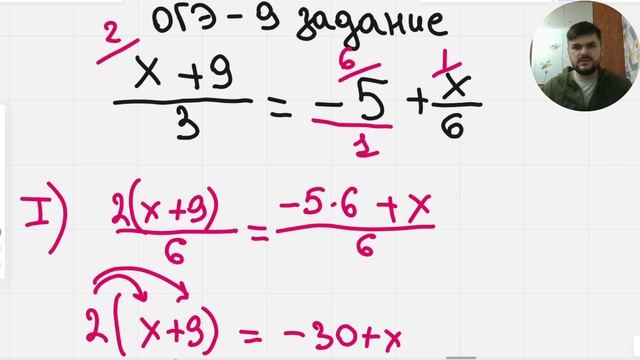 ОГЭ - 9 задание
2 6 1
x + 9 / 3 = -5 / 1 + x / 6
I) 2(x+9) / 6 = -5·6 + x / 6
2(x+9) = -30+x